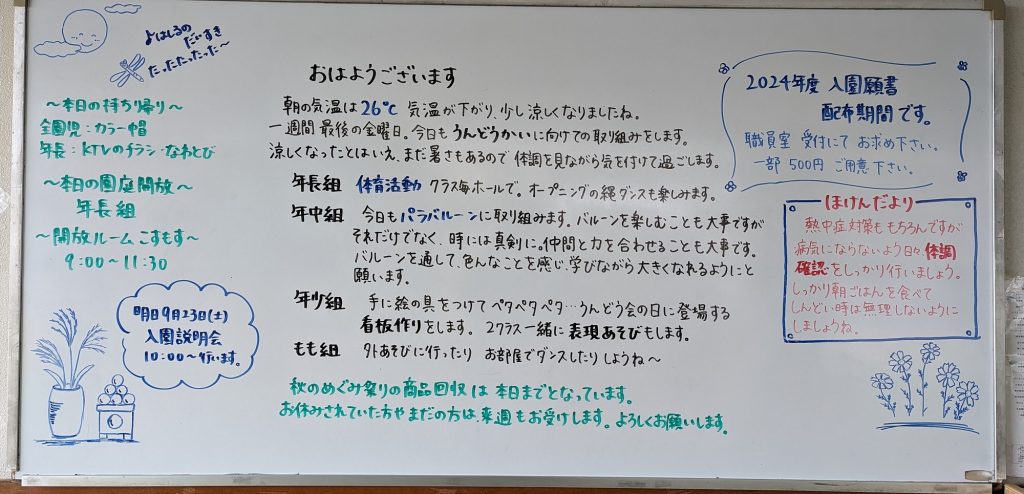 よはしるの
だいすき
たったたたった〜
〜本日の持ち帰り〜
全園児：カラー帽
年長：KTVのチラシ・なわとび
〜本日の園庭開放〜
年長組
〜開放ルーム こすもす〜
9:00〜11:30
明日9月23日(土)
入園説明会
10:00〜行います。
おはようございます
朝の気温は26℃ 気温が下がり、少し涼しくなりましたね。
一週間最後の金曜日。今日もうんどうかいに向けての取り組みをします。
涼しくなったとはいえ、まだ暑さもあるので 体調を見ながら気を付けて過ごします。
年長組 体育活動 クラス毎ホールで。オープニングの縄ダンスも楽しみます。
年中組 今日もパラバルーンに取り組みます。バルーンを楽しむことも大事ですが
それだけでなく、時には真剣に。仲間と力を合わせることも大事です。
バルーンを通して、色んなことを感じ、学びながら大きくなれるようにと
願います。
年少組 手に絵の具をつけて ペタペタペタ…うんどう会の日に登場する
看板作りをします。2クラス一緒に表現あそびもします。
もも組 外あそびに行ったり お部屋でダンスしたりしようね〜
秋のめぐみ祭りの商品回収は 本日までとなっています。
お休みされていた方や まだの方は、来週もお受けします。よろしくお願いします。
2024年度 入園願書
配布期間です。
職員室 受付にて お求め下さい。
一部 500円 ご用意下さい。
ほけんだより
熱中症対策ももちろんですが
病気にならないよう日々、体調
確認をしっかり行いましょう。
しっかり朝ごはんを食べて
しんどい時は無理しないように
しましょうね。